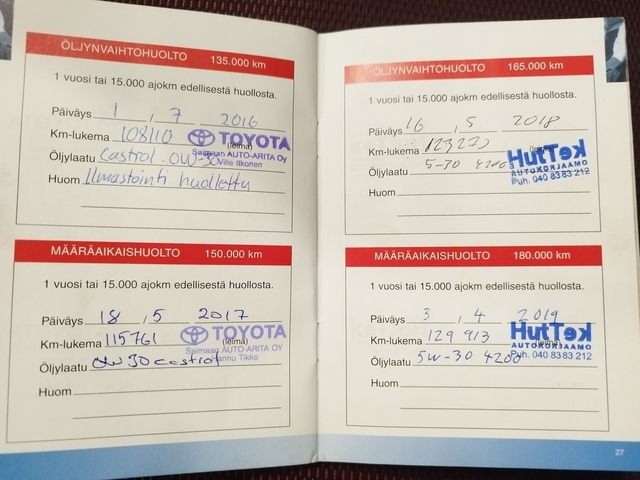 ÖLJYNVAIHTOHUOLTO 135.000 km
1 vuosi tai 15.000 ajokm edellisestä huollosta.
Päiväys 1 , 7 2016
Km-lukema 108110 TOYOTA
(leima)
Saimaan AUTO-ARITA Oy
Öljylaatu Castrol 0W-30 Ville Ilkonen
Huom Ilmastointi huollettu
MÄÄRÄAIKAISHUOLTO 150.000 km
1 vuosi tai 15.000 ajokm edellisestä huollosta.
Päiväys 18 , 5 2017
Km-lukema 115761 TOYOTA
(leima)
Saimaan AUTO-ARITA OY
Öljylaatu 0W30 castrol Hannu Tikka
Huom
ÖLJYNVAIHTOHUOLTO 165.000 km
1 vuosi tai 15.000 ajokm edellisestä huollosta.
Päiväys 16 , 5 2018
Km-lukema HuttKeT
AUTOKORJAAMO
Öljylaatu 5-30 4200 Puh. 040 8383 212
Huom
MÄÄRÄAIKAISHUOLTO 180.000 km
1 vuosi tai 15.000 ajokm edellisestä huollosta.
Päiväys 3 , 4 2019
Km-lukema 129 913 HuttKeT
(leima)
AUTOKORJAAMO
Öljylaatu 5W-30 4200 Puh. 040 8383 212
Huom
27